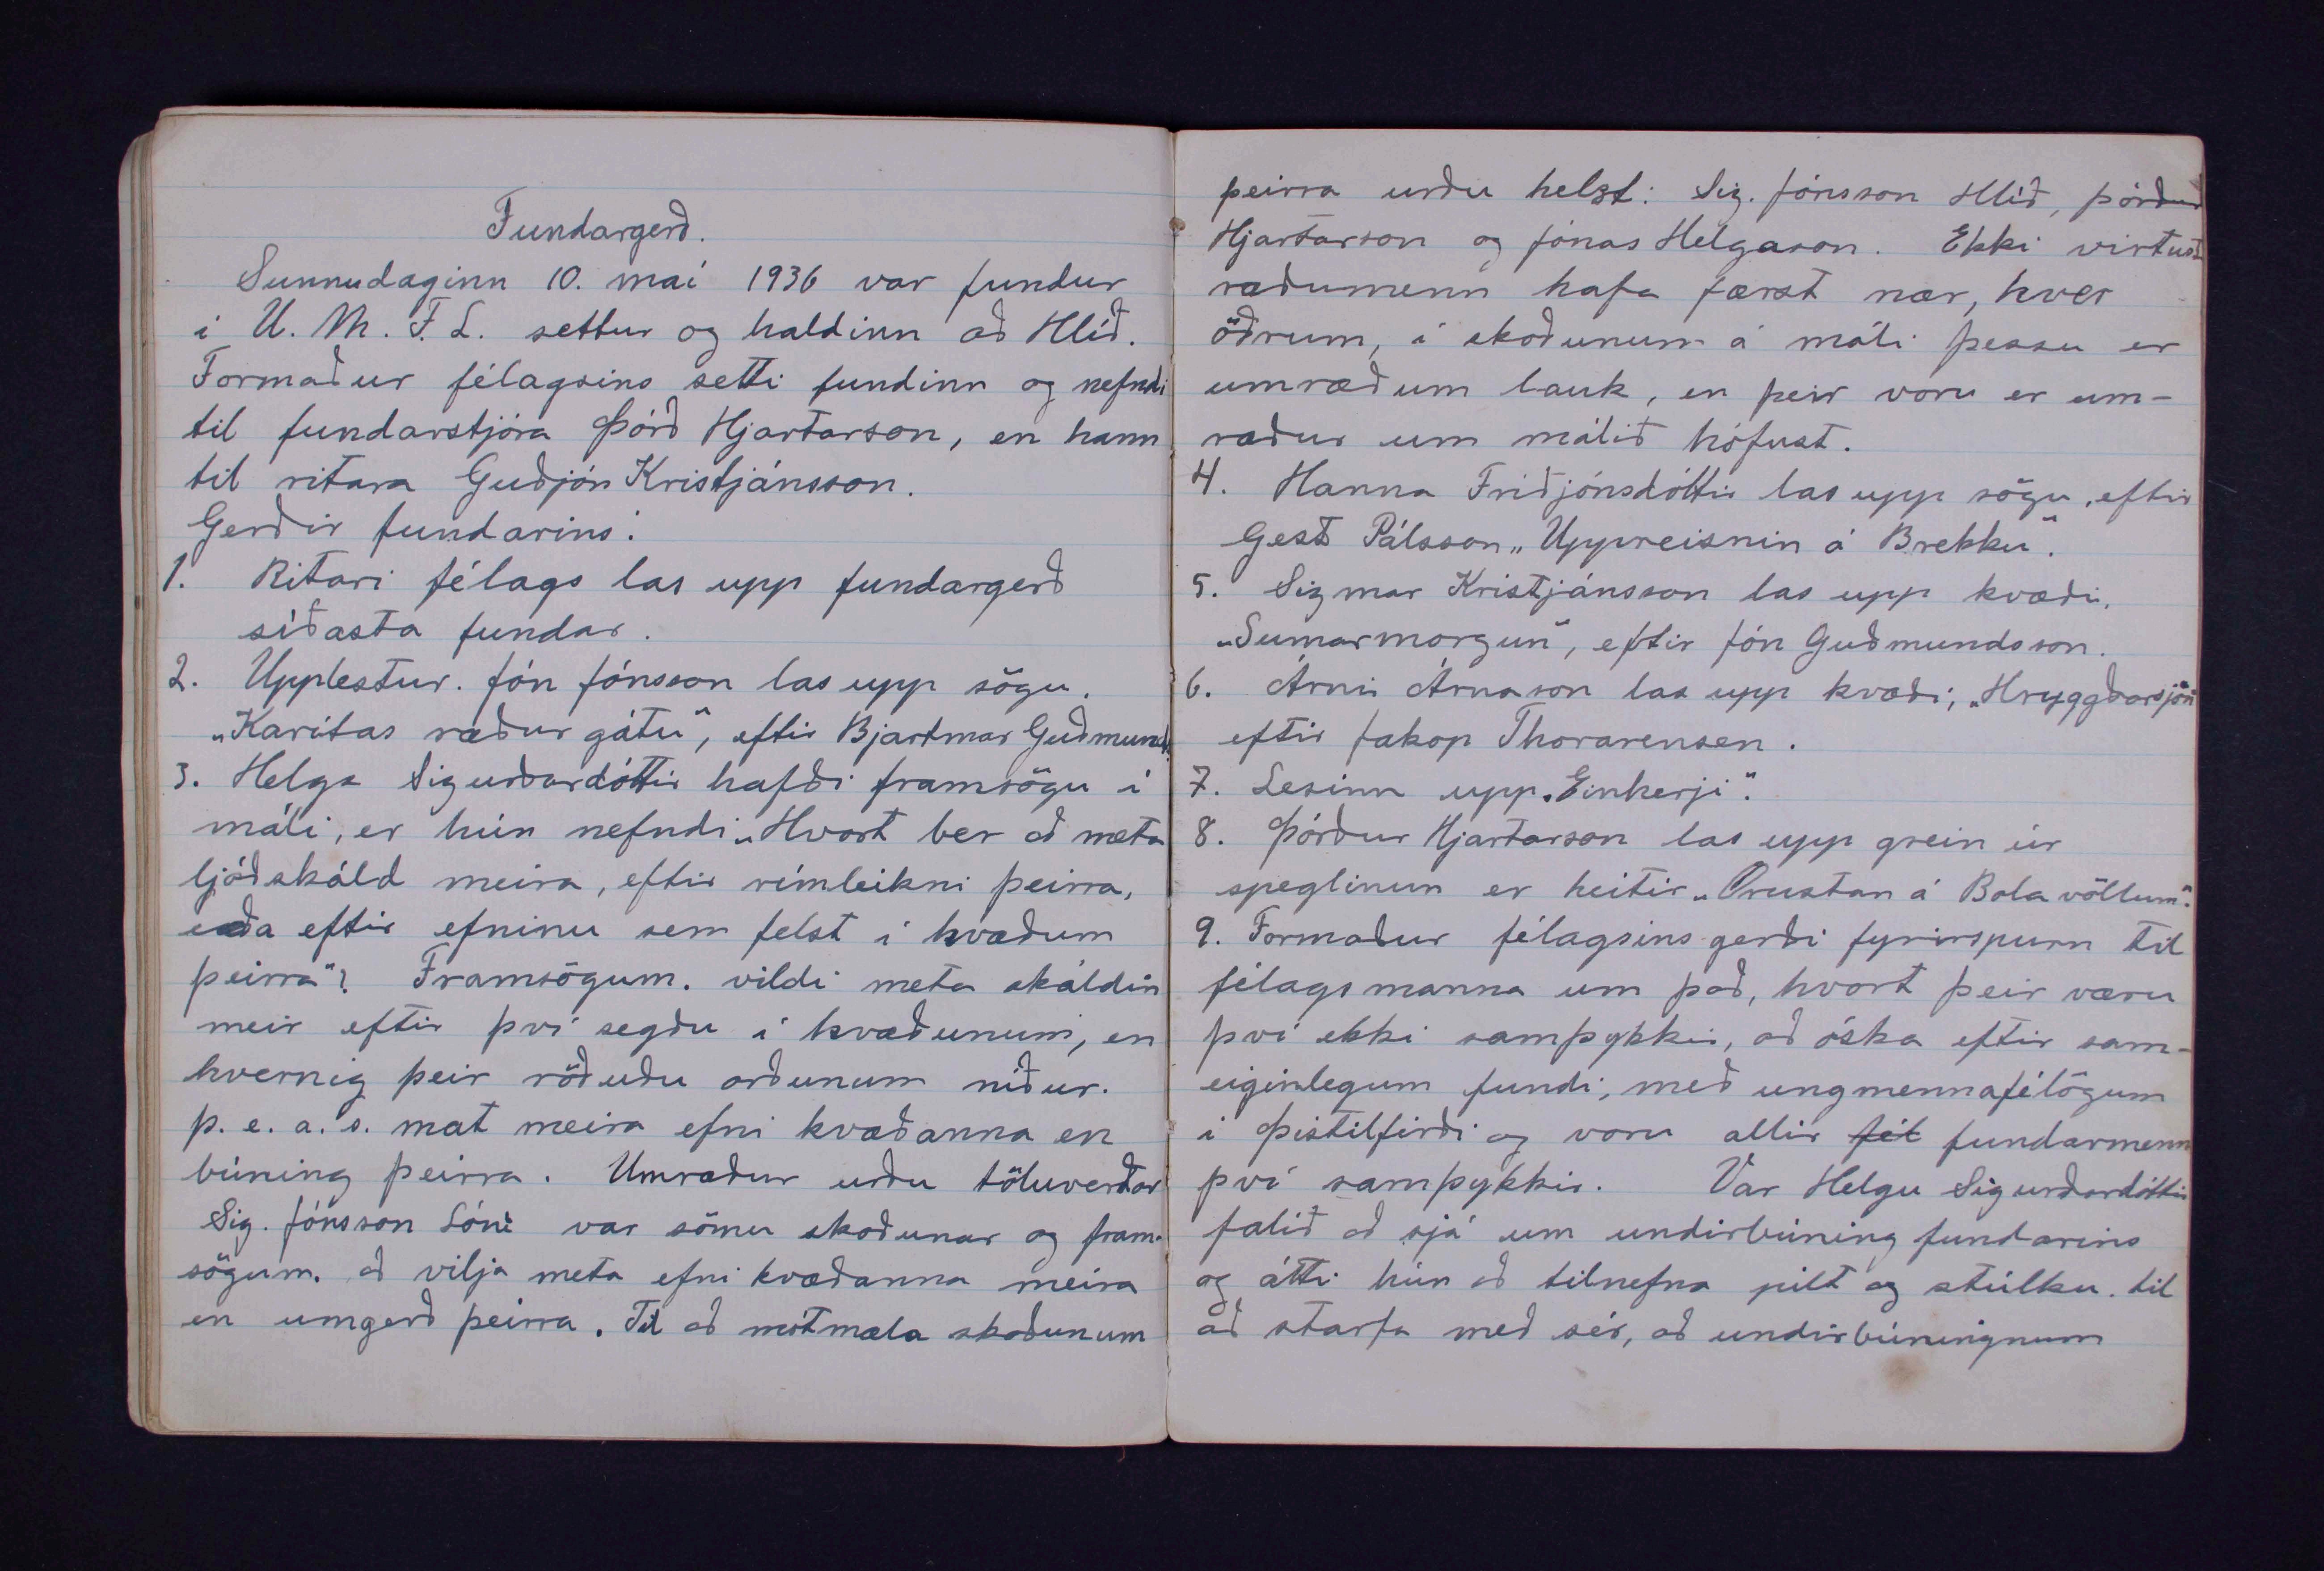 Fundargerð.
Sunnudaginn 10. maí 1936 var fundur
í U. M. F. L. settur og haldinn að Hlíð.
Formaður félagsins setti fundinn og nefndi
til fundarstjóra Þórð Hjartarson, en hann
til ritara Guðjón Kristjánsson.
Gerðir fundarins:
1. Ritari félags las upp fundargerð
síðasta fundar.
2. Upplestur. Jón Jónsson las upp sögu.
„Karítas ræður gátu“, eftir Bjartmar Guðmunds.
3. Helga Sigurðardóttir hafði framsögu í
máli, er hún nefndi „Hvort ber að meta
ljóðskáld meira, eftir rímleikni þeirra,
eða eftir efninu sem felst í kvæðum
þeirra“? Framsögum. vildi meta skáldin
meir eftir því segðu í kvæðunum, en
hvernig þeir röðuðu orðunum niður.
þ. e. a. s. mat meira efni kvæðanna en
búning þeirra. Umræður urðu töluverðar
Sig. Jónsson Lóni var sömu skoðunar og fram-
sögum. að vilja meta efni kvæðanna meira
en umgerð þeirra. Til að mótmæla skoðunum
þeirra urðu helst: Sig. Jónsson Hlíð, Þórður
Hjartarson og Jónas Helgason. Ekki virtust
ræðumenn hafa færst nær, hver
öðrum, í skoðunum á máli þessu er
umræðum lauk, en þeir voru er um-
ræður um málið hófust.
4. Hanna Friðjónsdóttir las upp sögu, eftir
Gest Pálsson „Uppreisnin á Brekku“.
5. Sigmar Kristjánsson las upp kvæði,
„Sumarmorgun“, eftir Jón Guðmundsson.
6. Árni Árnason las upp kvæði, „Hryggðarsjón“
eftir Jakop Thorarensen.
7. Lesinn upp „Einherji“.
8. Þórður Hjartarson las upp grein úr
speglinum er heitir „Orustan á Bolavöllum“.
9. Formaður félagsins gerði fyrirspurn til
félagsmanna um það, hvort þeir væru
því ekki samþykkir, að óska eftir sam-
eiginlegum fundi, með ungmennafélögum
í Þistilfirði og voru allir fél fundarmenn
því samþykkir. Var Helgu Sigurðardóttir
falið að sjá um undirbúning fundarins
og átti hún að tilnefna pilt og stúlku til
að starfa með sér, að undirbúningnum